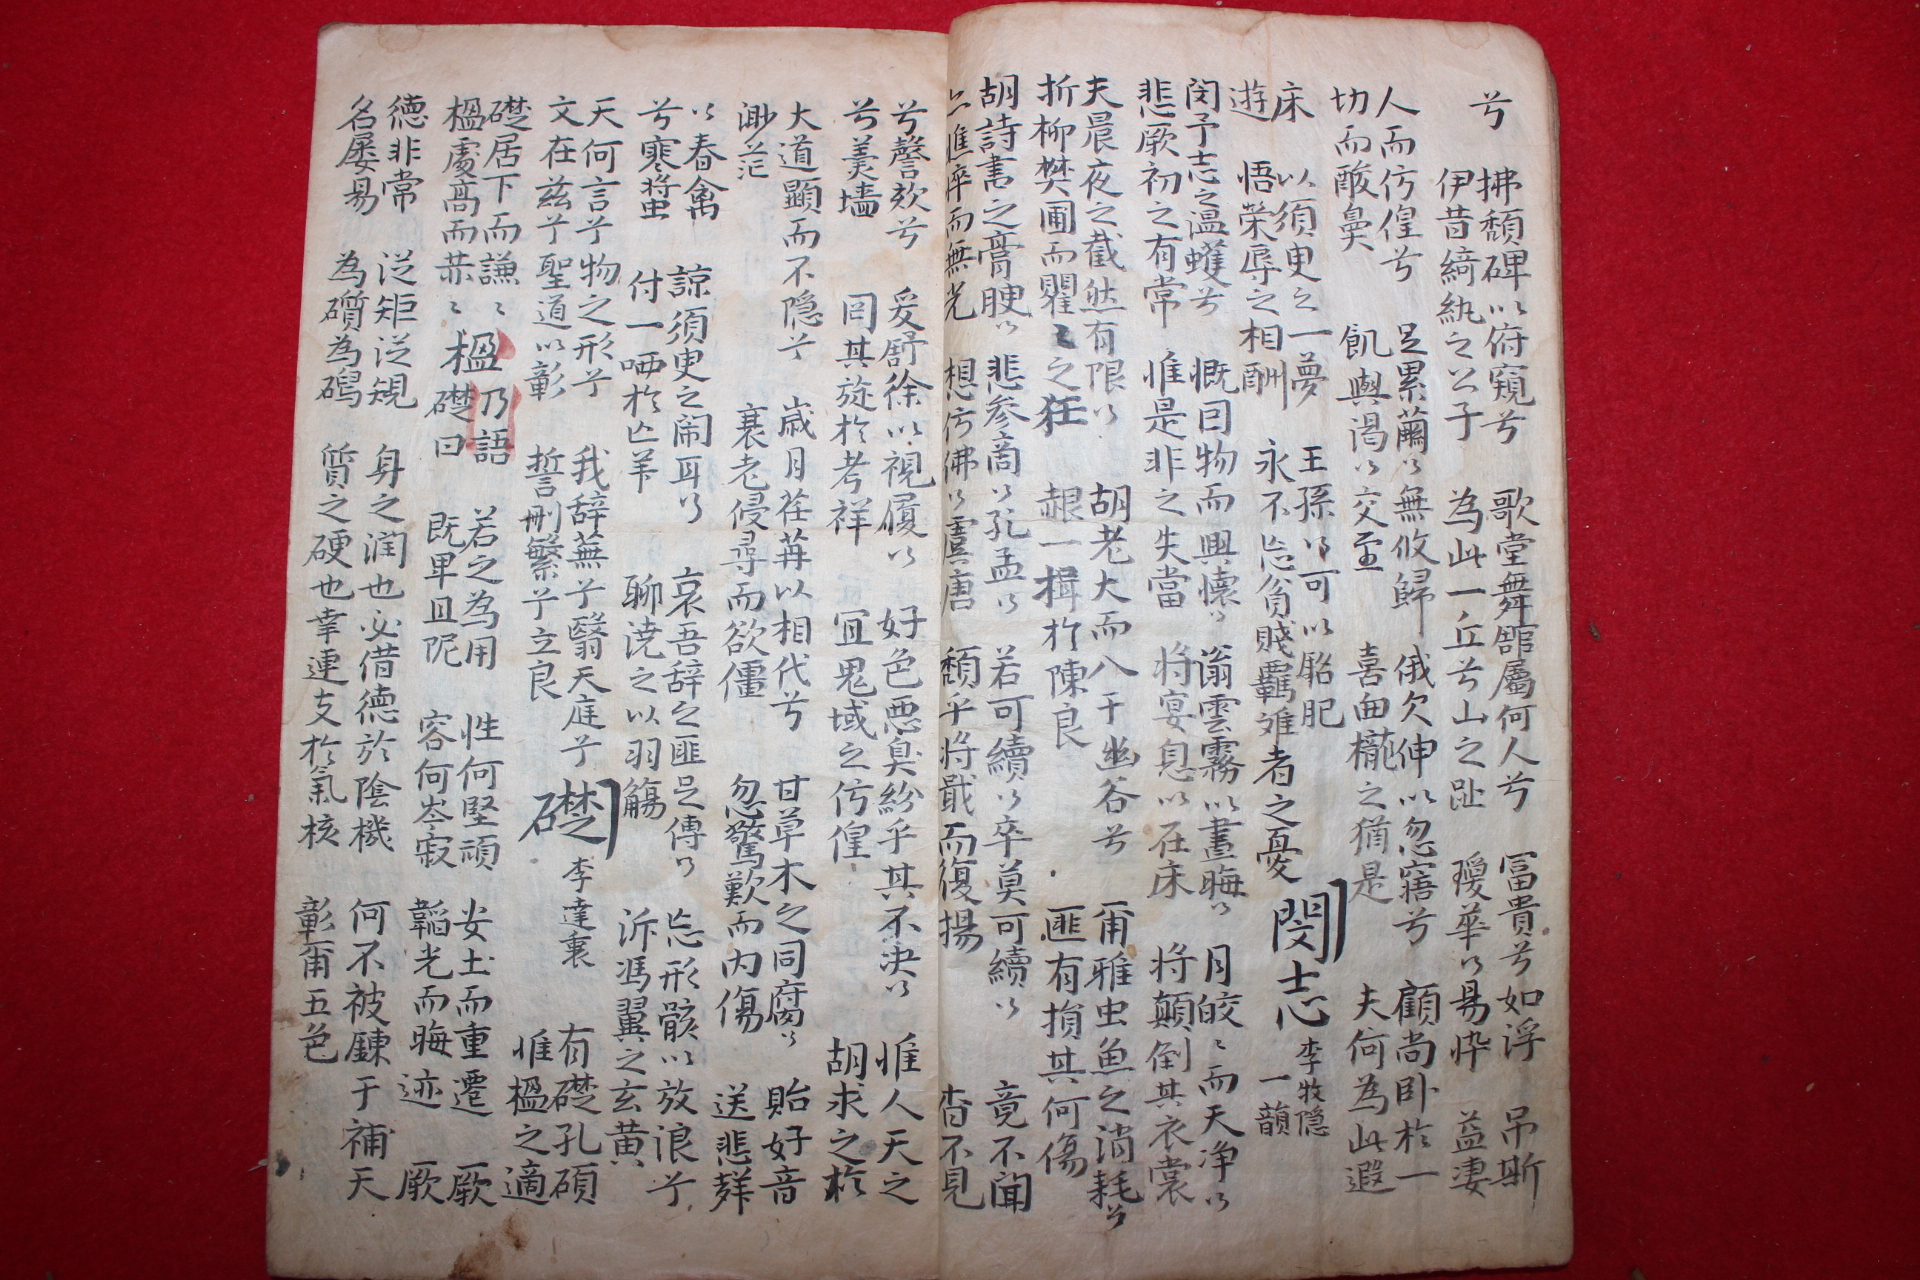 兮 拂頹碑以府窺兮 歌堂舞舘屬何人兮 冨貴兮如浮 吊斯
伊昔綺紈之公子 為此一丘兮山之趾 瓊華以易悴 益凄
人而彷徨兮 足累繭以無攸歸 俄欠伸以忽寤兮 顧尚卧於一
切而酸鼻 飢與渴以交至 喜曲櫳之猶是 夫何為此遐
床 以須臾之一夢 王孫乃可以貂肥
遊 悟榮辱之相酬 永不忘貧賤羈難者之憂 閔志 李牧隱 一韻
閔予志之温蠖兮 慨曰物而興懷以 滃雲霧以晝晦以 月皎〻而天净以
悲厥初之有常 惟是非之失當 將宴息以在床 將顛倒其衣裳
夫晨夜之截然有限以 胡老大而八于幽谷兮 甭雅虫魚之消耗兮
折柳樊圃而瞿〻之狂 䞓一揖於陳良 匪有損其何傷
胡詩書之膏腴以 悲參商以孔孟以 若可續以卒莫可續以 竟不聞
而無光 想彷彿以虞唐 頹乎將戢而復揚 杳不見
兮謦欬兮 爰舒徐以視履以 好色惡臭紛乎其不决以 惟人天之
兮羹墻 罔其旋於考祥 宜鬼域之彷徨 胡求之於
大道顯而不隱兮 歲月荏苒以相代兮 甘草木之同腐以 貽好音
渺茫 衰老侵尋而欲僵 忽驚歎而内傷 送悲
以春禽 諒須臾之閙耳以 哀吾辞之匪足傳以 忘形骸以放浪兮
兮寒螀 付一哂於亡羊 聊澆之以羽觴 泝馮翼之玄黃
天何言兮物之形兮 我辞蕪兮翳天庭兮
文在茲兮聖道以彰 誓刪繁兮立良 礎 李達衷 有礎孔碩
惟楹之適
礎居下而謙〻 楹乃語 若之為用 性何堅頑 安土而重遷 厥
楹處高而恭〻 楹礎曰 既卑且呢 容何岑寂 韜光而晦迹 厥
德非常 泛矩泛䂓 身之潤也必借德於陰機 何不被鍊于補天
名屡易 為礩為磶 質之硬也幸連支於氣核 彰甭五色